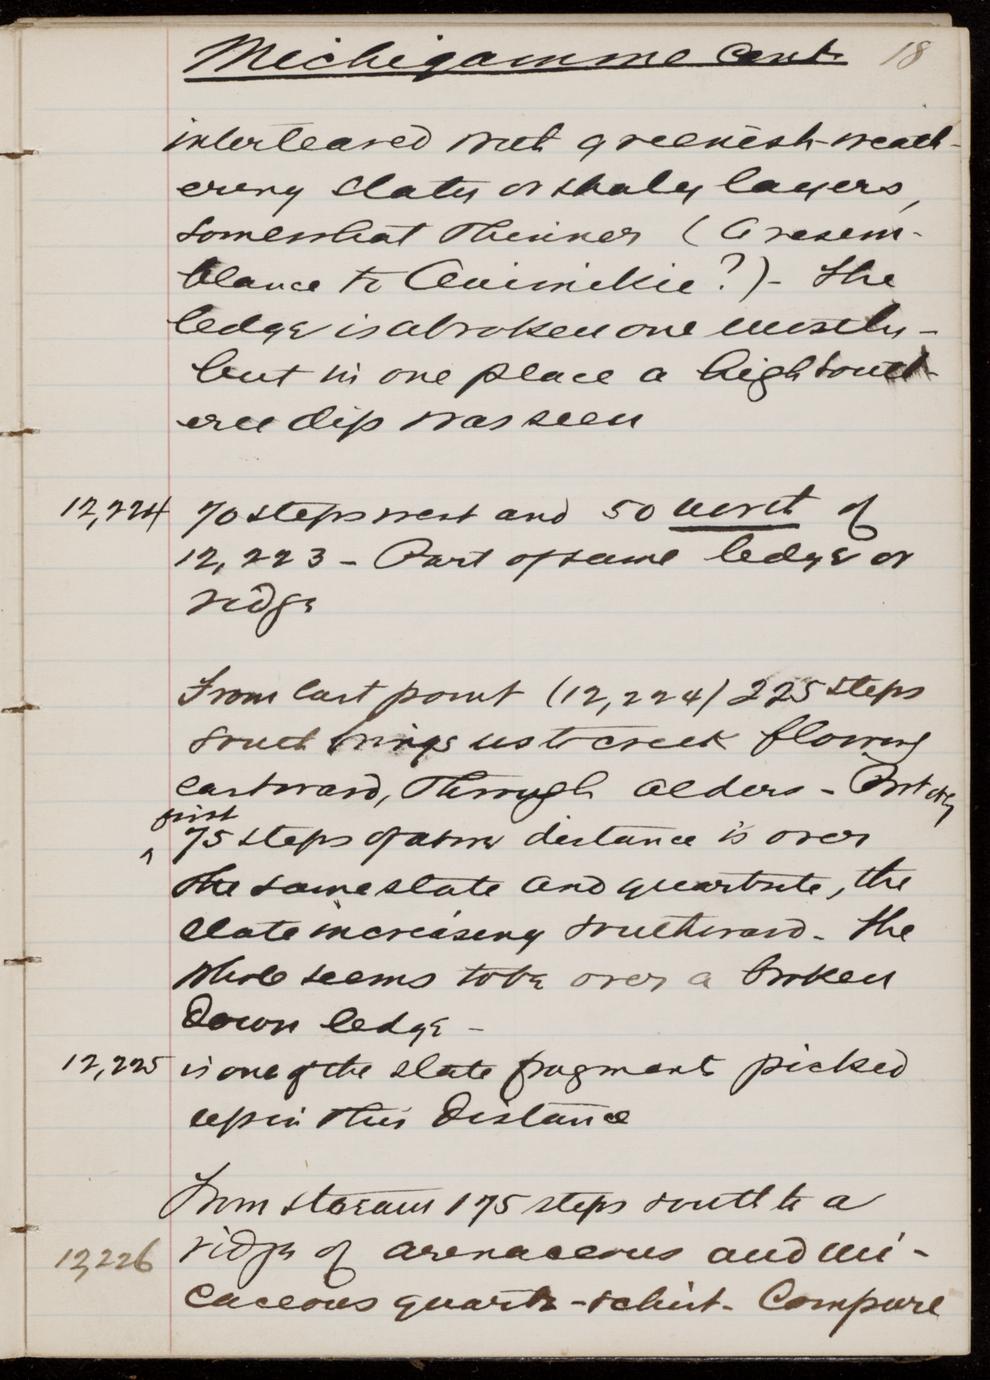 Michigamme Cont. 18
interleaved with greenish-weath-
ering slaty or shaly layers,
somewhat thinner (a resem-
blance to Animikie?)- The
ledge is a broken one mostly-
but in one place a high south-
ern dip was seen
12,224 70 steps west and 50 north of
12,223 - Part of same ledge or
ridge
From last point (12,224) 225 steps
south brings us to creek flowing
eastward, through alders -
first
^ 75 steps of above distance is over
the same slate and quartzite, the
slate increasing southward. The
whole seems to be over a broken
down ledge -
12,225 is one of the slate fragments picked
up in this distance
From stream 175 steps south to a
12,226 ridge of arenaceous and mi-
caceous quartz-schist. Compare